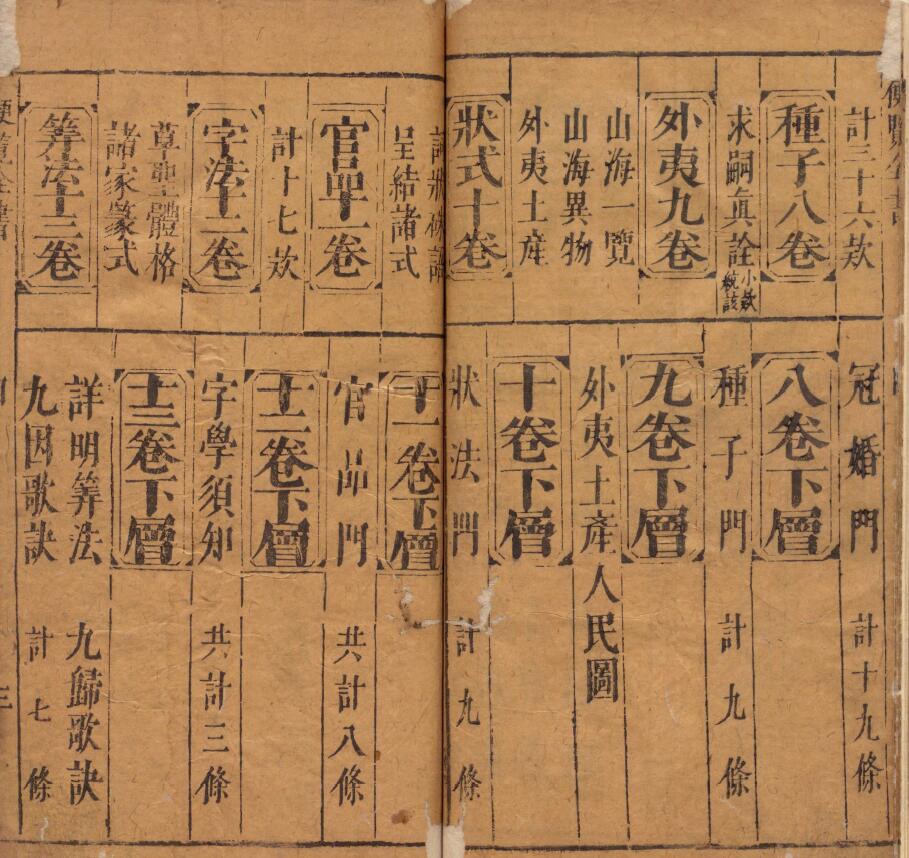 計三十六欵
種子八卷
求嗣眞詮 小欵統該
外夷九卷
山海一覽
山海異物
外夷土產
狀式十卷
冠婚門 計十九條
八卷下層
種子門 計九條
九卷下層
外夷土產人民圖
十卷下層
狀法門 計九條
呈結諸式
官品十一卷
計十七欵
字法十二卷
草聖體格
諸家篆式
筭法十三卷
十一卷下層
官品門 共計八條
十二卷下層
字學須知 共計三條
十三卷下層
詳明筭法 九歸歌訣
九因歌訣 計七條
三